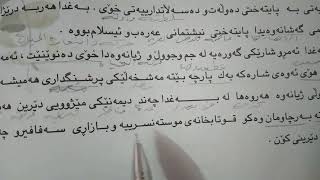 ـیەتی بە پایتەختی دەوڵەت و دەسەڵاتدارییەتی خۆی . بەغدا هەر بە درێژا
ـمی گەشانەوەیدا پایتەختی نیشتمانی عەرەب و ئیسلام بووە .
غدا ئەمرۆ شارێکی گەورەیە لە جم وجووڵ و ژیانەوەدا خۆی دەنوێنێت ، ئەمە
هۆی ئەوەی شارەکە یەک پارچە ببێتە مەشخەڵێکی پرشنگداری هەمیشە
ژیانەوە. هەروەها لە بـــەغدا چەند دیمەنێکی مێژوویی دێرین هە
ـتە بەرچاومان وەکو قوتابخانەی موستەنسرییە و بازاڕی سەفافیرو چە
دێرینی کۆن .